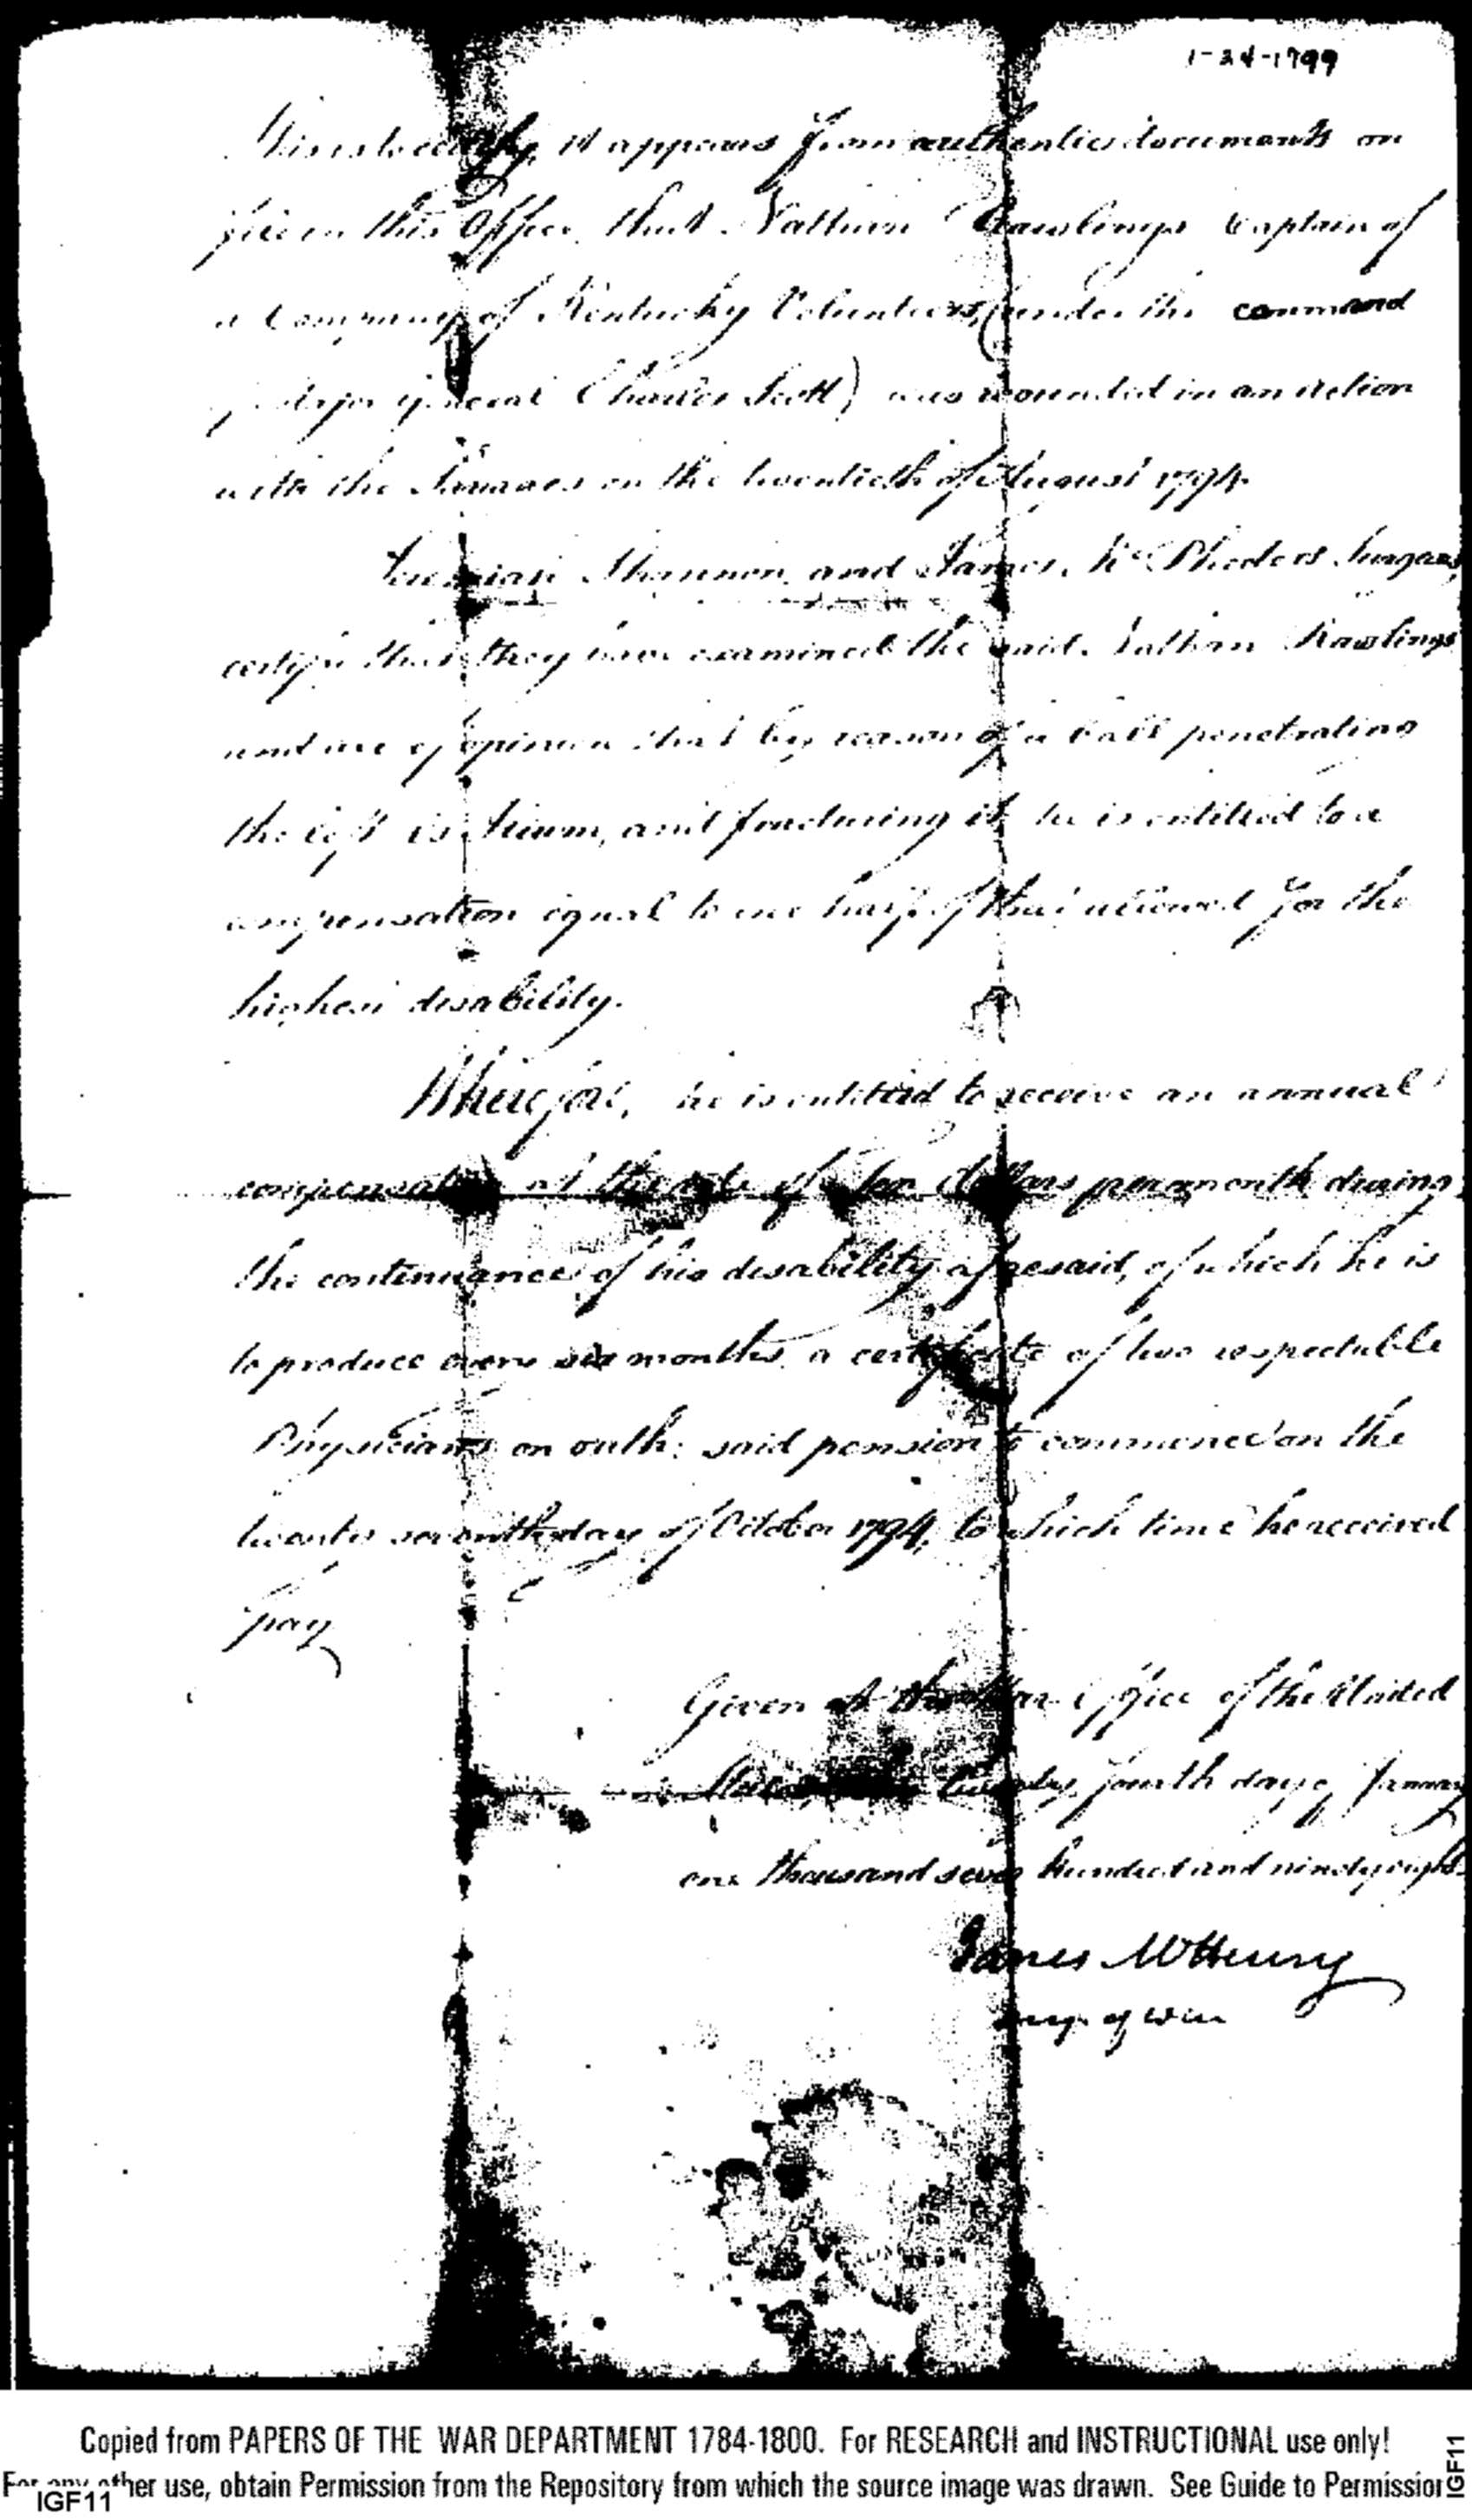 1-24-1799
This is to certify, it appears from authentic documents on
file in this Office, that Nathan Rawlings Captain of
a Company of Kentucky Volunteers, (under the command
of Major general Charles Scott) was wounded in an action
with the Savages on the twentieth of August 1794.
Jeremiah Shannon and James McPheeters Surgeons,
certify that they have examined the said Nathan Rawlings
and are of opinion that by reason of a ball penetrating
the left ischium, and fracturing it he is entitled to a
compensation equal to one half of that allowed for the
highest disability.
Wherefore, he is entitled to receive an annual
compensation at the rate of ten dollars per month during
the continuance of his disability aforesaid, of which he is
to produce every six months a certificate of two respectable
Physicians on oath: said pension to commence on the
twenty seventh day of October 1794, to which time he received
pay
Given at the War Office of the United
States, twenty fourth day of January
one thousand seven hundred and ninety eight.
James McHenry
Secy. of War
Copied from PAPERS OF THE WAR DEPARTMENT 1784-1800. For RESEARCH and INSTRUCTIONAL use only!
For any other use, obtain Permission from the Repository from which the source image was drawn. See Guide to Permission
IGF11
IGF11